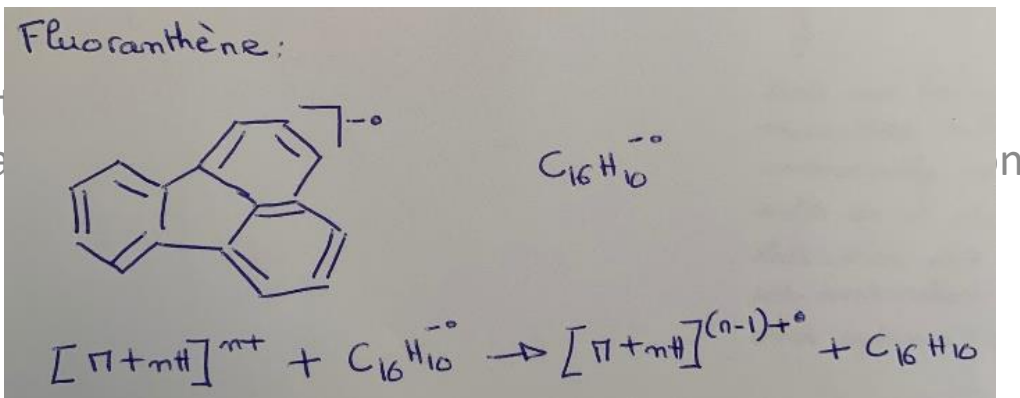 Fluoranthène:
C₁₆H₁₀⁻°
[M+nH]ⁿ⁺ + C₁₆H₁₀⁻° → [M+nH]⁽ⁿ⁻¹⁾⁺° + C₁₆H₁₀